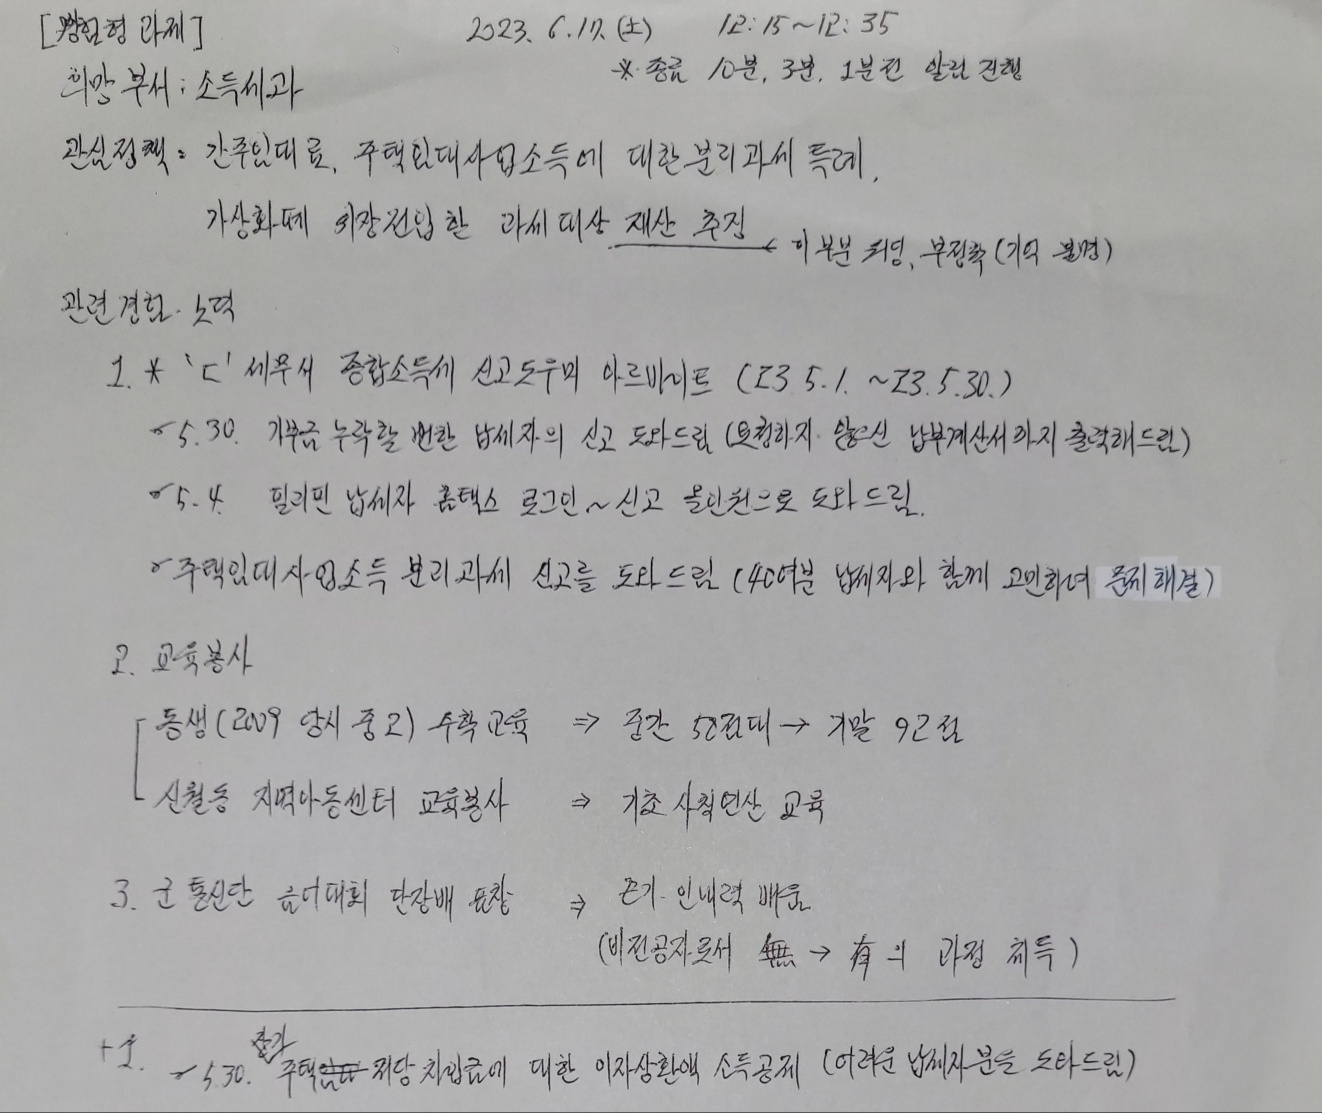 [경험형 과제] 2023. 6. 17. (土) 12:15~12:35
※ 종료 10분, 3분, 1분전 알림 진행
희망 부서 : 소득세과
관심정책 : 간주임대료, 주택임대사업소득에 대한 분리과세 특례,
가상화폐 위장전입한 과세대상 재산 추징
이 부분 희미, 부정확 (기억 불명)
관련경험·노력
1. * 'ㄷ' 세무서 종합소득세 신고도우미 아르바이트 (23. 5. 1. ~23. 5. 30.)
5. 30. 기부금 누락할 번한 납세자의 신고 도와드림 (요청하지 않으신 납부계산서까지 출력해드림)
5. 4. 필리핀 납세자 홈택스 로그인 ~ 신고 올인원으로 도와드림.
주택임대사업소득 분리과세 신고를 도와드림 (40여분 납세자와 함께 고민하며 문제해결)
2. 교육봉사
동생 (2009 당시 중2) 수학교육 ⇒ 중간 50점대 → 기말 92점
신월동 지역아동센터 교육봉사 ⇒ 기초 사칙연산 교육
3. 군 통신단 음어대회 단장배 표창 ⇒ 끈기·인내력 배움
(비전공자로서 無 → 有의 과정 취득)
+1. 5. 30. 추가 주택 저당 차입금에 대한 이자상환액 소득공제 (어려운 납세자분을 도와드림)